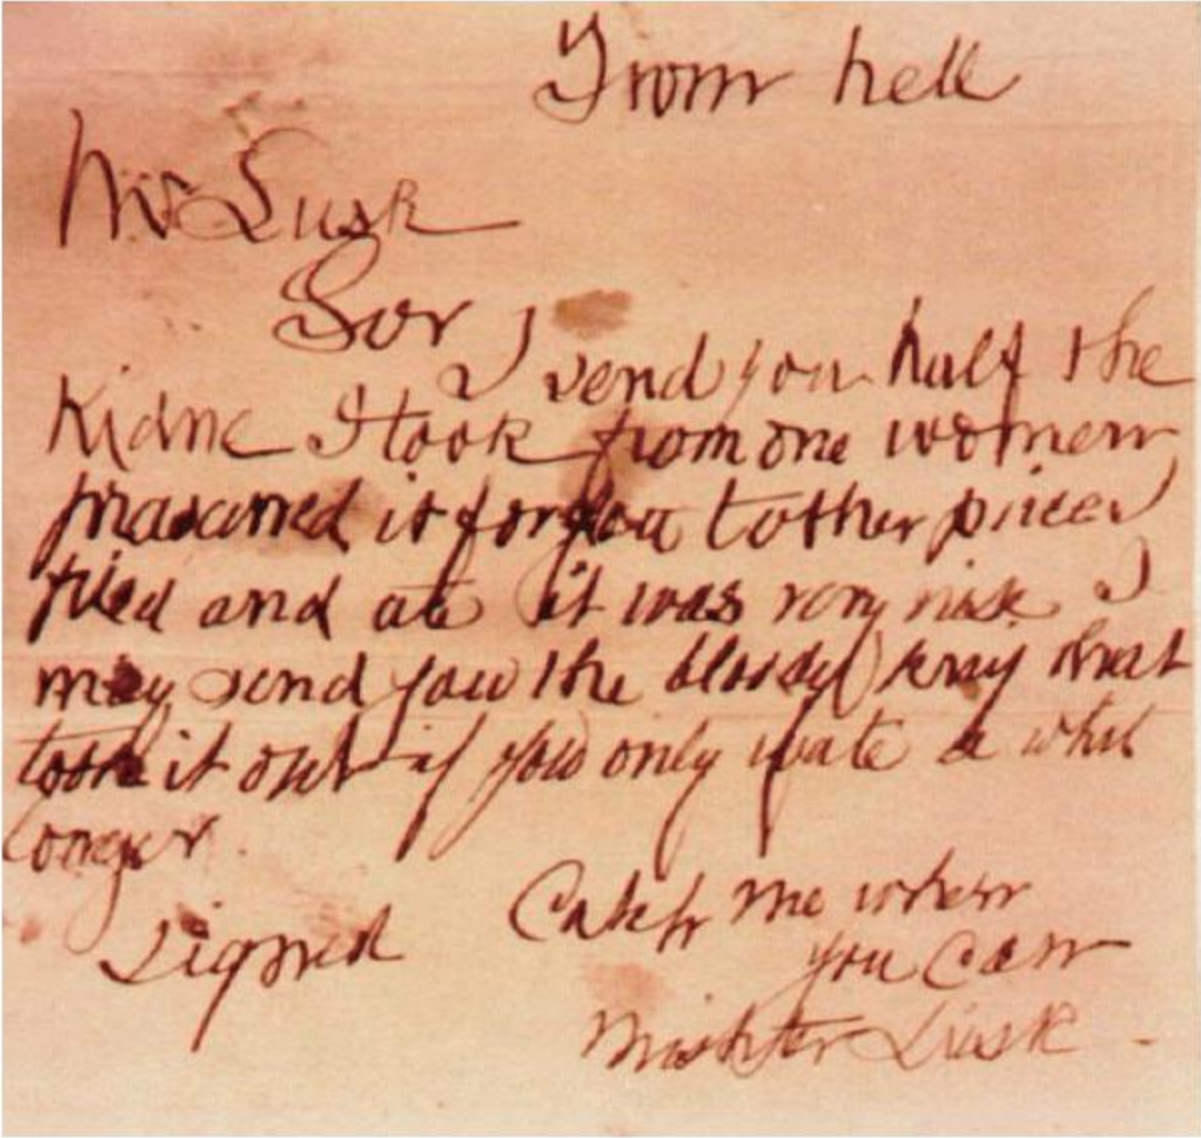 From hell
Mr Lusk
Sor
I send you half the
Kidne I took from one women
prasarved it for you tother piece I
fried and ate it was very nise I
may send you the bloody knif that
took it out if you only wate a whil
longer.
signed Catch me when
you can
Mishter Lusk